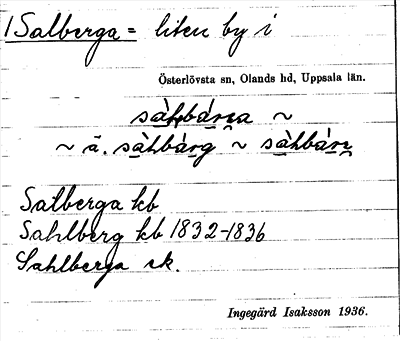 1 Salberga = liten by i
Österlövsta sn, Olands hd, Uppsala län.
~
~ ä. ~
Salberga kb
Sahlberg kb 1832-1836
Sahlberga sk.
Ingegärd Isaksson 1936.